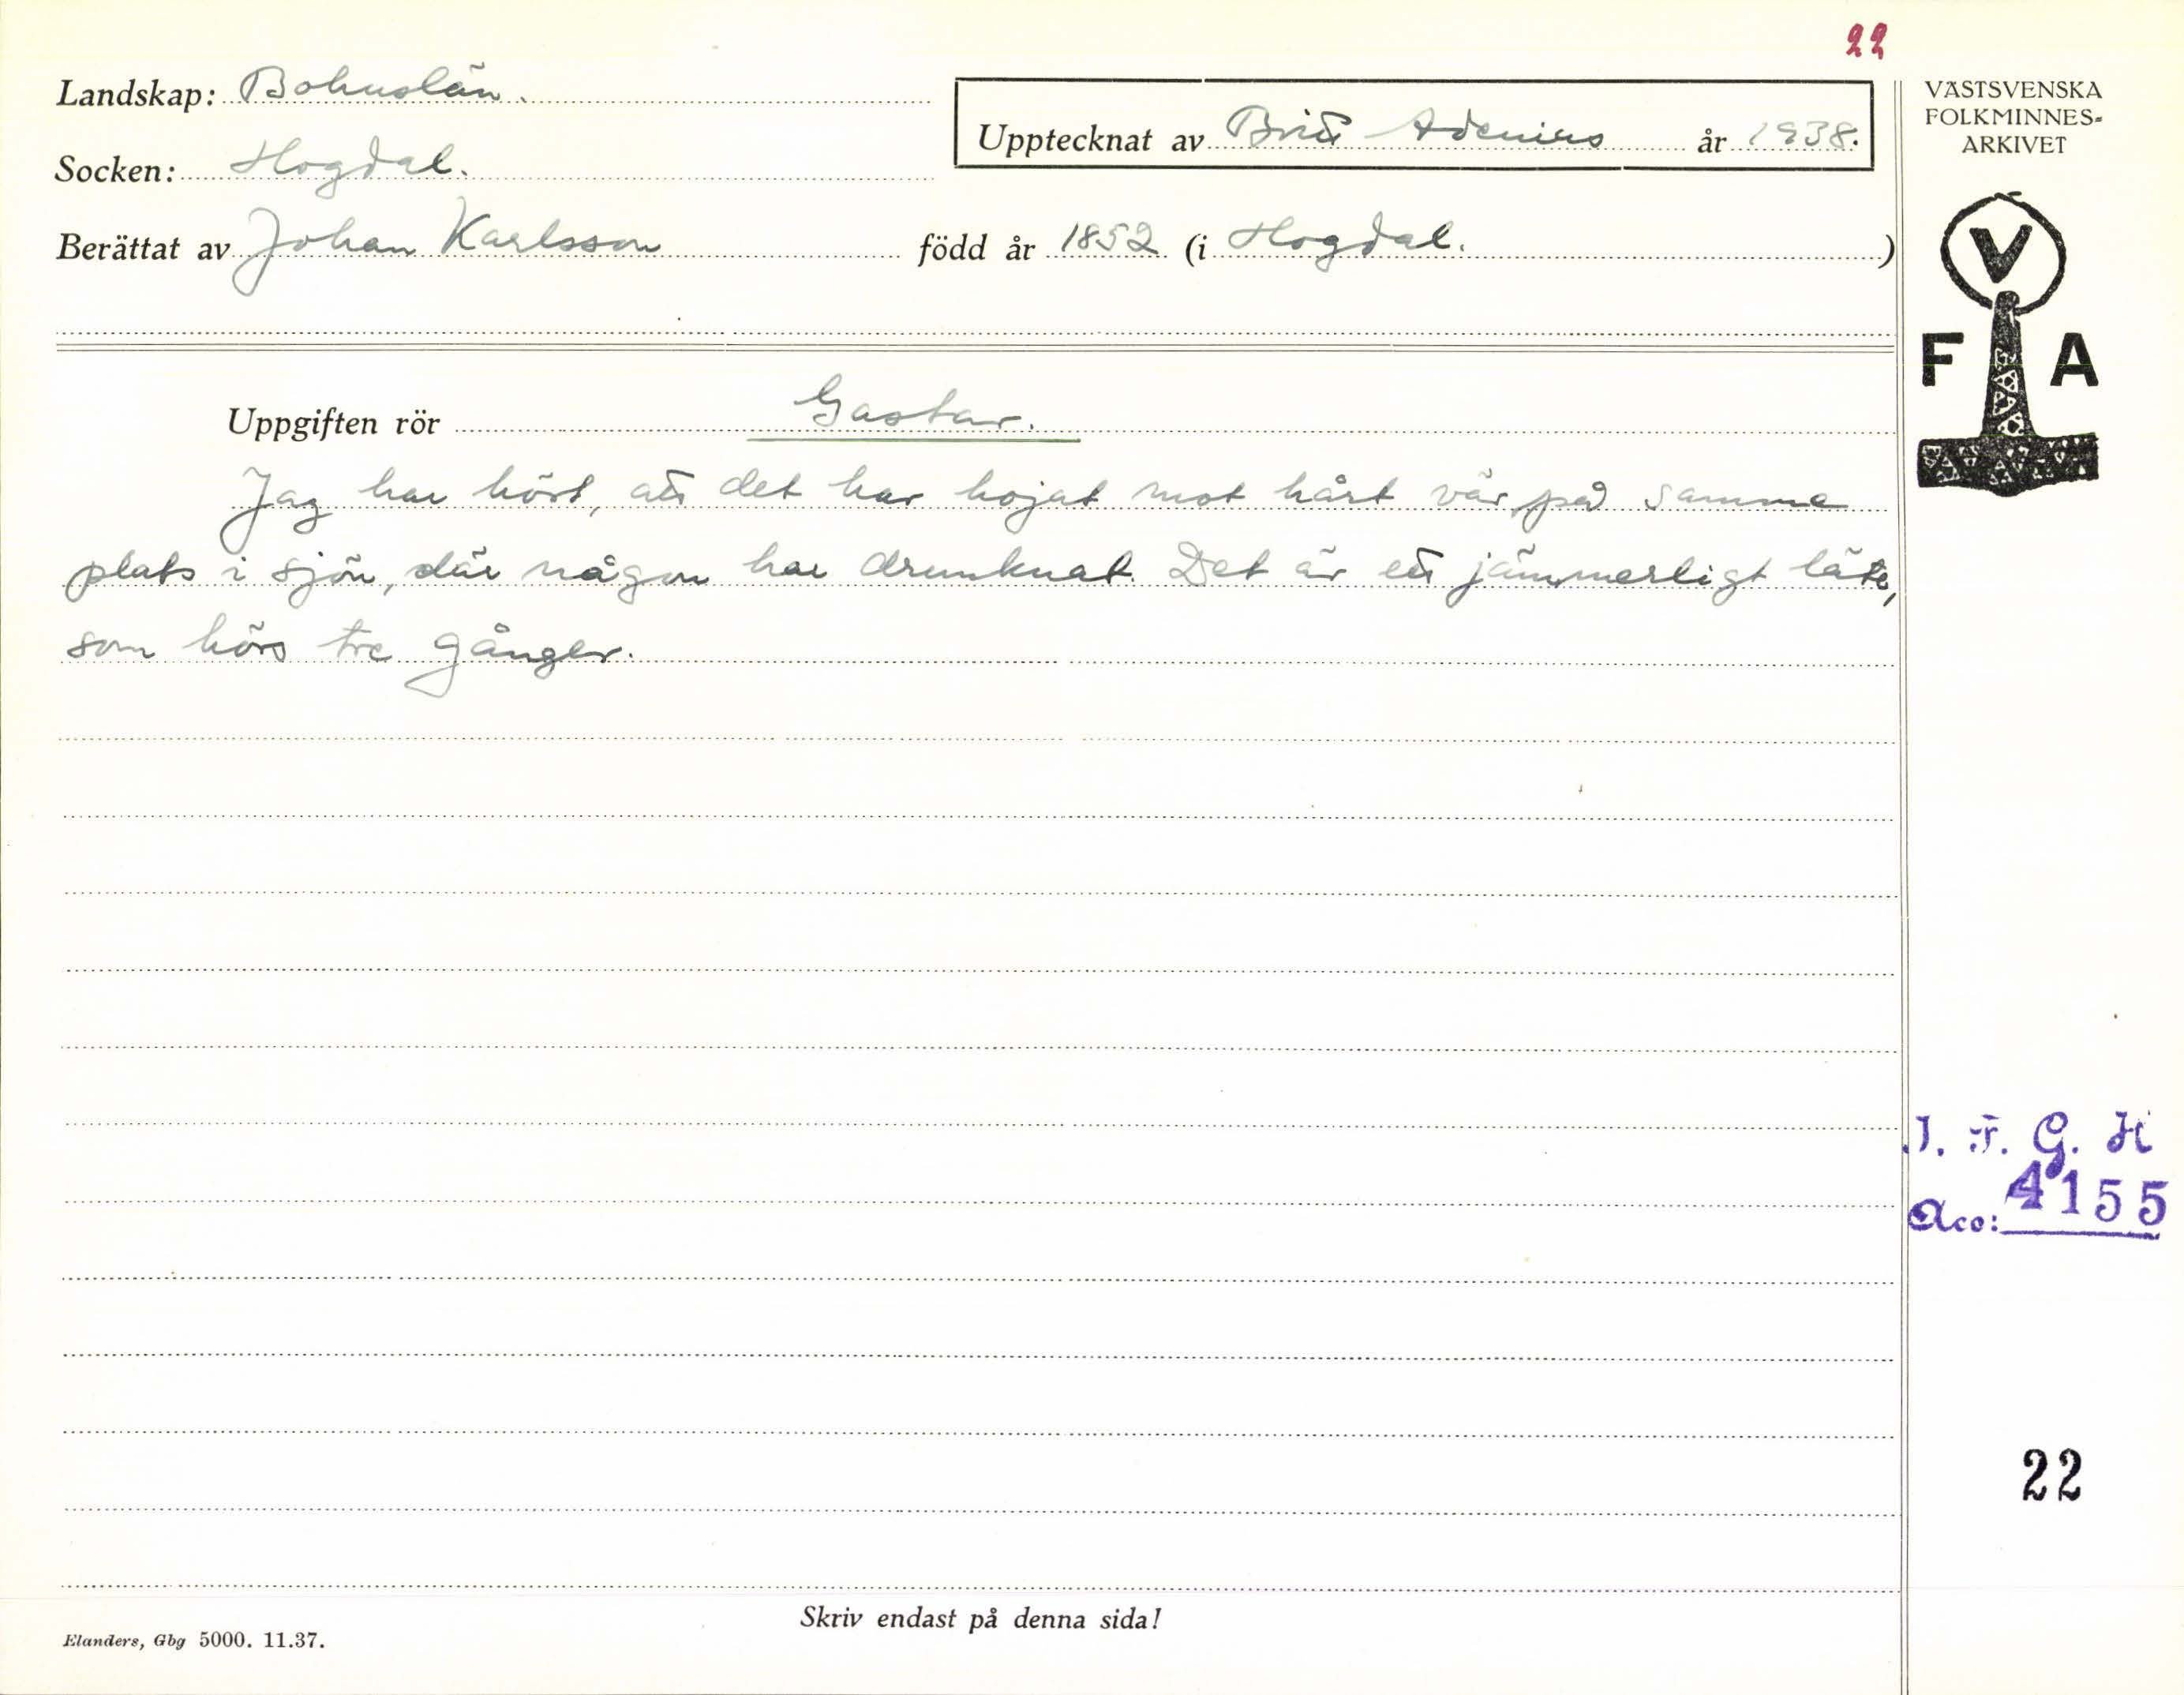 22
Landskap: Bohuslän.
Upptecknat av Britt Adenius år 1938.
Socken: Hogdal.
Berättat av Johan Karlsson född år 1852 (i Hogdal. )
VÄSTSVENSKA
FOLKMINNES-
ARKIVET
V
F A
Uppgiften rör Gastar.
Jag har hört, att det har hojat mot hårt vär på samma
plats i sjön, där någon har drunknat. Det är ett jämmerligt läte,
som hörs tre gånger.
I. F. G. H
Acc: 4155
22
Skriv endast på denna sida!
Elanders, Gbg 5000. 11.37.